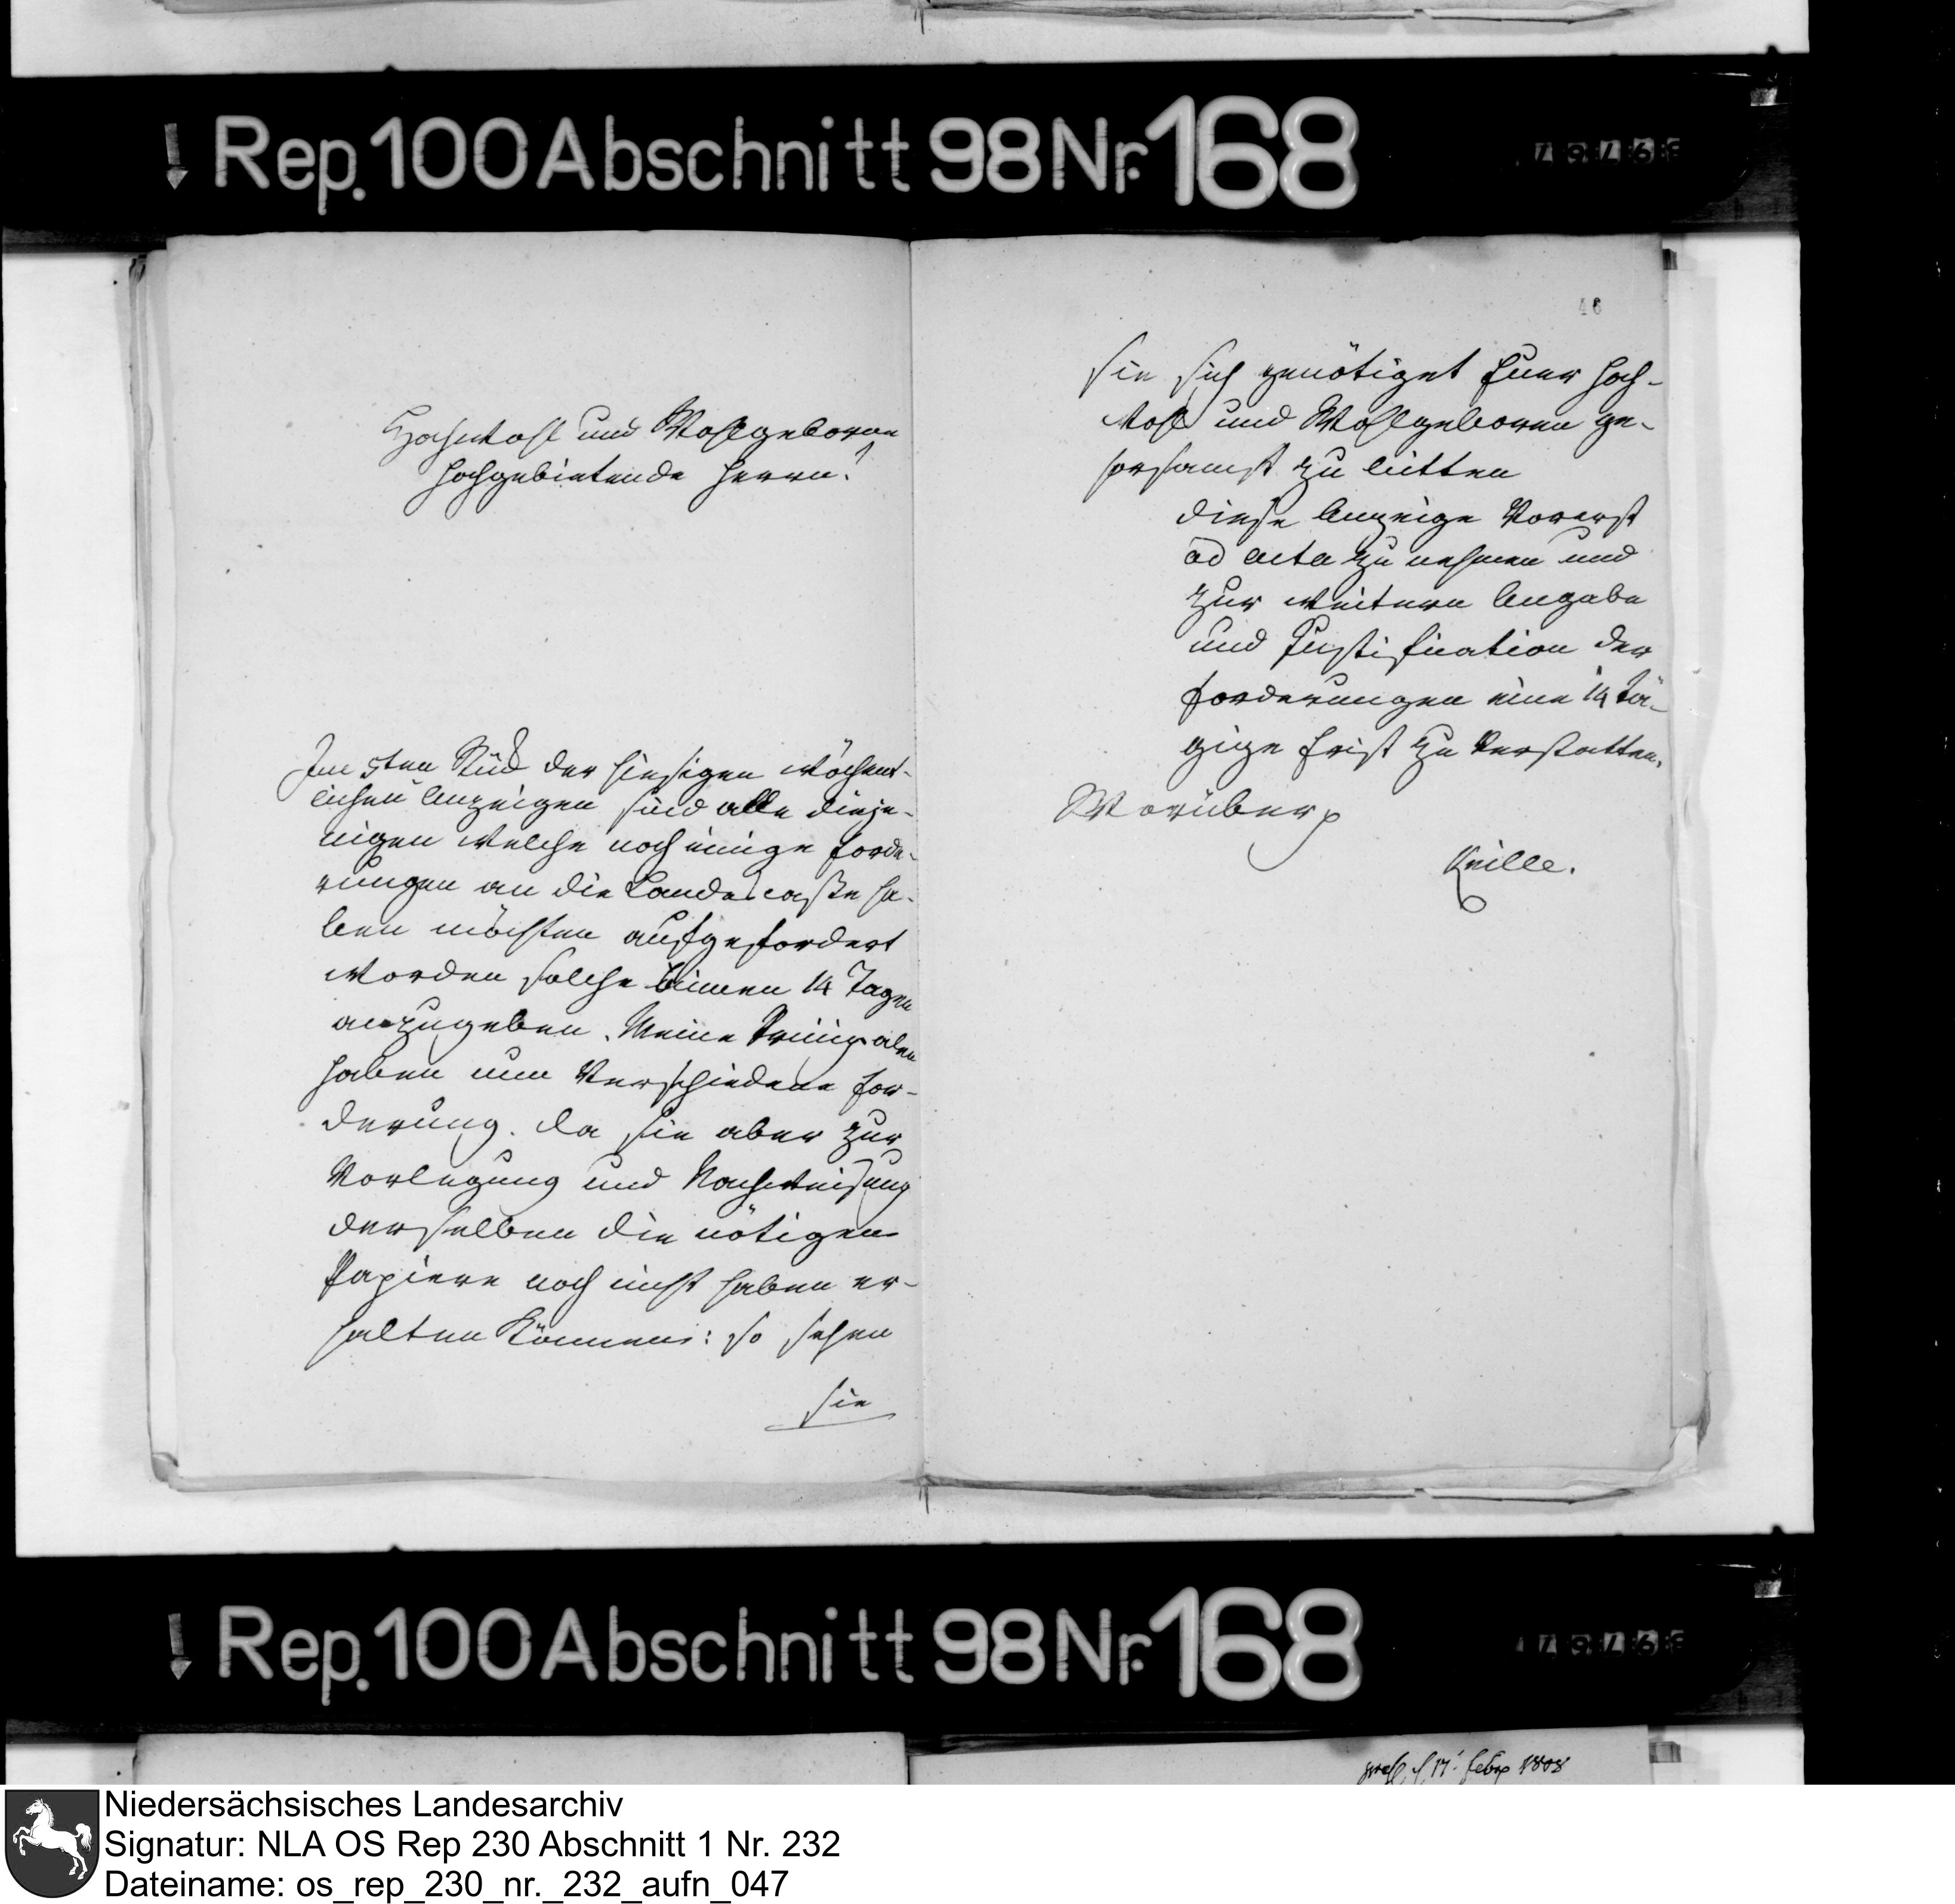 Rep. 100 Abschnitt 98 Nr. 168
Hochwohl und Wohlgeborne
Hochgebietende Herrn!
Im 5ten Stück der hiesigen wöchent-
lichen Anzeigen sind alle dieje-
nigen welche noch einige Forde-
rungen an die Landescasse ha-
ben möchten aufgefordert
worden solche binnen 14 Tagen
anzugeben. Meine Principalen
haben nun verschiedene For-
derung. Da sie aber zur
Vorlegung und Nachweisung
derselben die nötigen
Papiere noch nicht haben er-
halten können: so sehen
sie
46
sie sich genötiget Euer Hoch-
wohl und Wohlgeboren ge-
horsamst zu bitten
diese Anzeige vorerst
ad acta zu nehmen und
zur weitern Angabe
und Justification der
Forderungen eine 14 tä-
gige Frist zu verstatten.
Worüber
Rep. 100 Abschnitt 98 Nr. 168
17 Febr 1808
Niedersächsisches Landesarchiv
Signatur: NLA OS Rep 230 Abschnitt 1 Nr. 232
Dateiname: os_rep_230_nr._232_aufn_047